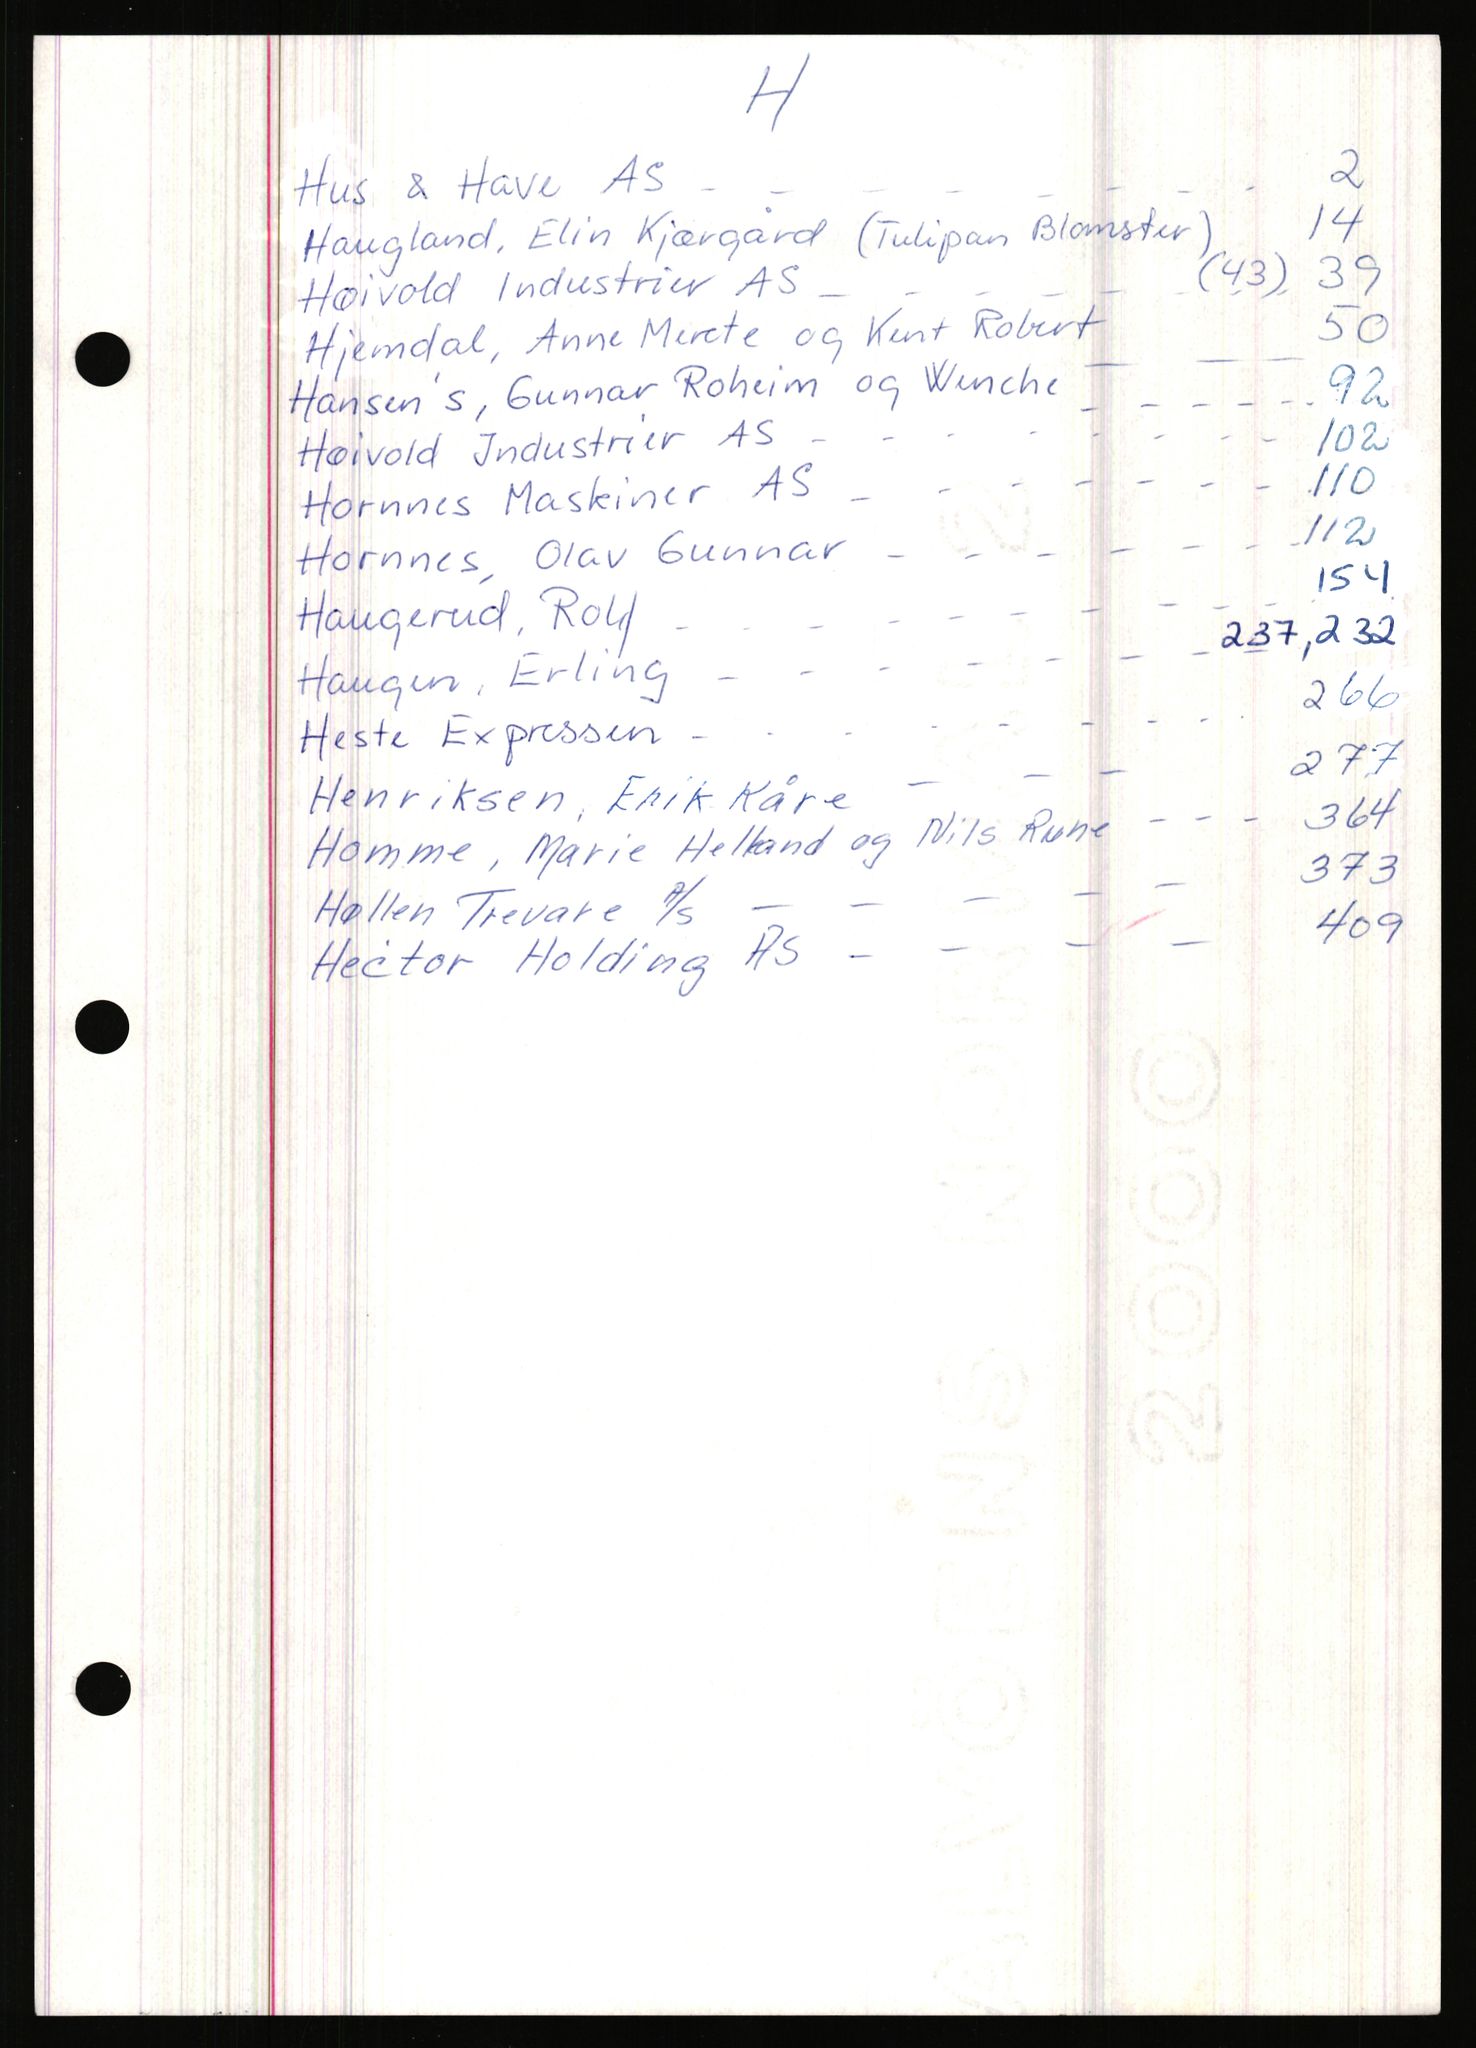 H
Hus & Have AS - - - - - - - - 2
Haugland, Elin Kjærgård (Tulipan Blomster) 14
Høivold Industrier AS - - - - - (43) 39
Hjemdal, Anne Merete og Kent Robert - - - 50
Hansen's, Gunnar Roheim og Wenche - - - - - - 92
Høivold Industrier AS - - - - - - - - 102
Hornnes Maskiner AS - - - - - - - 110
Hornnes, Olav Gunnar - - - - - - - 112
Haugerud, Rolf - - - - - - - - - 154
Haugen, Erling - - - - - - - 237, 232
Heste Expressen - - - - - - - - - 266
Henriksen, Erik Kåre - - - 277
Homme, Marie Helland og Nils Rune - - - 364
Høllen Trevare A/S - - - - - 373
Hector Holding AS - - - - 409
ALVØENS NORWAY
2000